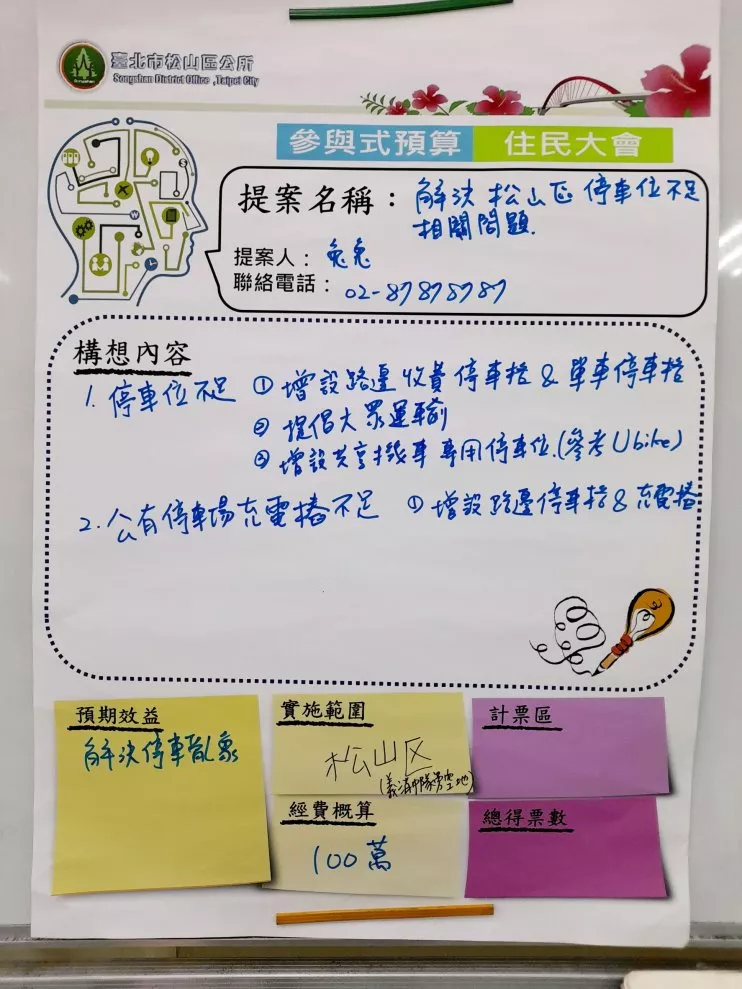 臺北市松山區公所
Songshan District Office ,Taipei City
參與式預算 住民大會
提案名稱：解決 松山區 停車位不足
相關問題.
提案人：兔兔
聯絡電話：02-87878787
構想內容
1. 停車位不足 ① 增設路邊收費停車格 & 單車停車格
② 提倡大眾運輸
③ 增設共享機車專用停車位.(參考Ubike)
2. 公有停車場充電樁不足 ① 增設路邊停車格 & 充電樁
預期效益
解決停車亂象
實施範圍
松山区
計票區
經費概算
100萬
總得票數